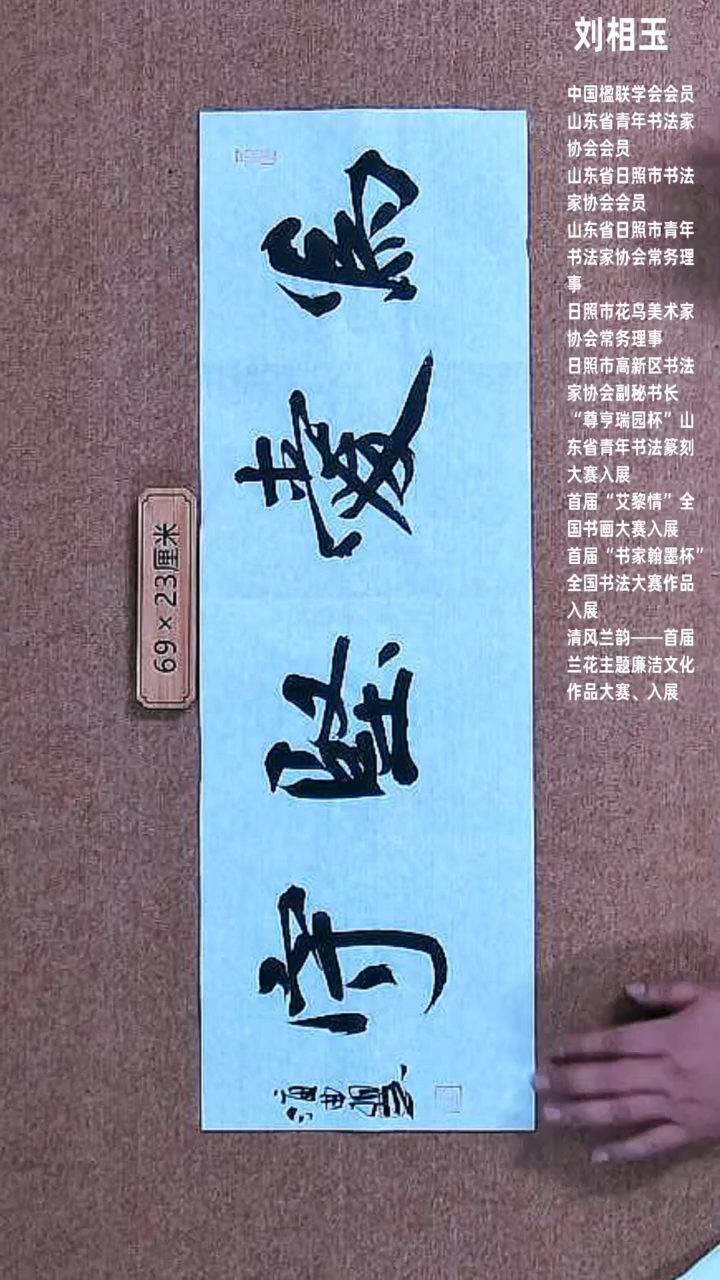 刘相玉
中国楹联学会会员
山东省青年书法家
协会会员
山东省日照市书法
家协会会员
山东省日照市青年
书法家协会常务理
事
日照市花鸟美术家
协会常务理事
日照市高新区书法
家协会副秘书长
“尊亨瑞园杯”山
东省青年书法篆刻
大赛入展
首届“艾黎情”全
国书画大赛入展
首届“书家翰墨杯”
全国书法大赛作品
入展
清风兰韵——首届
兰花主题廉洁文化
作品大赛、入展
為愛堅守
69×23厘米